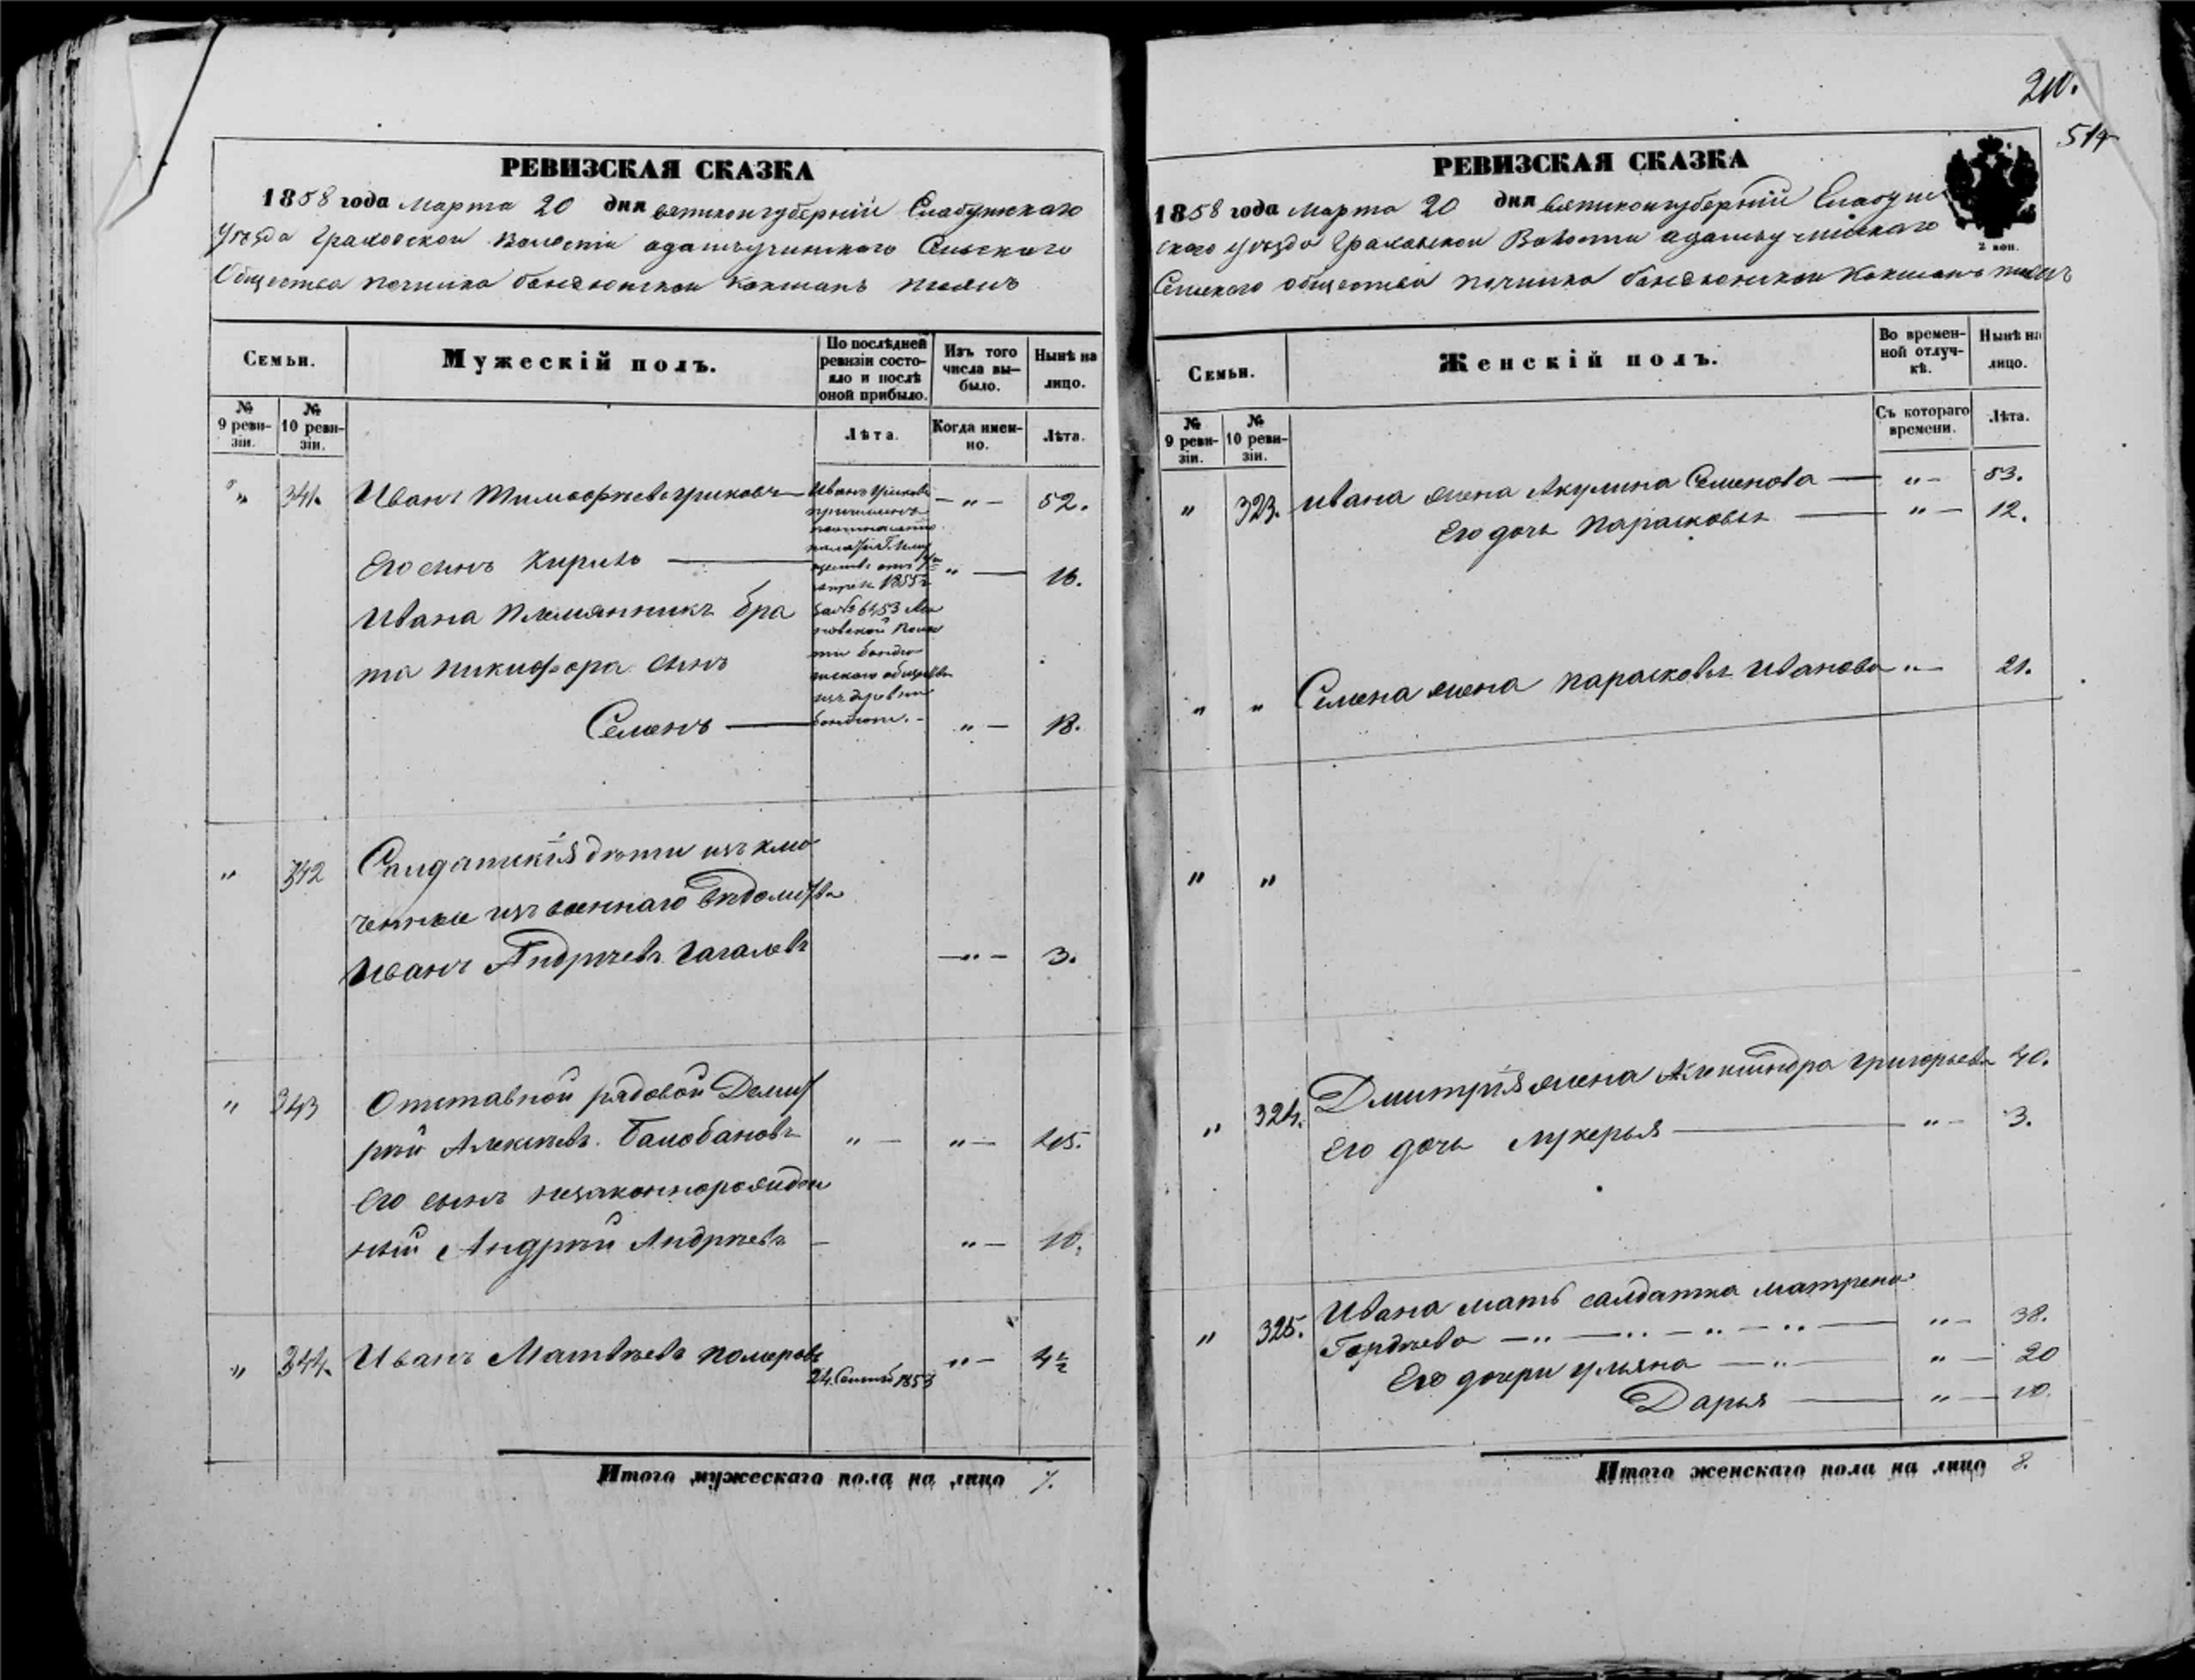 210.
514
РЕВИЗСКАЯ СКАЗКА
1858 года Марта 20 дня вятской губерніи Елабужскаго
Уѣзда Граховской Волости адамъучинскаго Сельскаго
Общества починка бондюжской Какшанъ
Семьи.
Мужескій полъ.
По послѣдней
ревизіи состо-
яло и послѣ
оной прибыло.
Изъ того
числа вы-
было.
Нынѣ на
лицо.
№
9 реви-
зіи.
№
10 реви-
зіи.
Лѣта.
Когда имен-
но.
Лѣта.
" 341. Иванъ Тимофѣевъ —"— 52.
Его сынъ Кирило — " — 16.
Ивана племянникъ бра
та никифора сынъ
Семенъ — "— 18.
Иванъ
причисленъ
1855
за № 6453
новской
изъ деревни
" 342 Салдатскія дѣти изклю
ченные изъ военнаго
Иванъ Андрѣевъ —"— 3.
" 343 Отставной рядовой Дмит
рій Алексѣевъ Балобановъ "— "— 45.
Его сынъ незаконнорожден
ный Андрѣй Андрѣевъ — "— 10.
" 344. Иванъ Матвѣевъ "— 4½
24. Сентяб 1853
Итого мужескаго пола на лицо 7.
РЕВИЗСКАЯ СКАЗКА
1858 года Марта 20 дня вятской губерніи Елабуж
скаго уѣзда Граховской Волости адамъучинскаго
Сельскаго общества починка бондюжской Какшанъ
2 коп.
Семьи.
Женскій полъ.
Во времен-
ной отлуч-
кѣ.
Нынѣ на
лицо.
№
9 реви-
зіи.
№
10 реви-
зіи.
Съ котораго
времени.
Лѣта.
" 323. Ивана жена Акулина Семенова — "— 53.
Его дочь Парасковья — "— 12.
" " Семена жена парасковья Иванова "— 21.
" "
" 324. Дмитрія жена Александра григорьева 40.
Его дочь лукерья — "— 3.
" 325. Ивана мать салдатка матрена
Гордѣева —"—"—"—"— "— 38.
Его дочери ульяна —"— "— 20
Дарья — "— 10.
Итого женскаго пола на лицо 8.